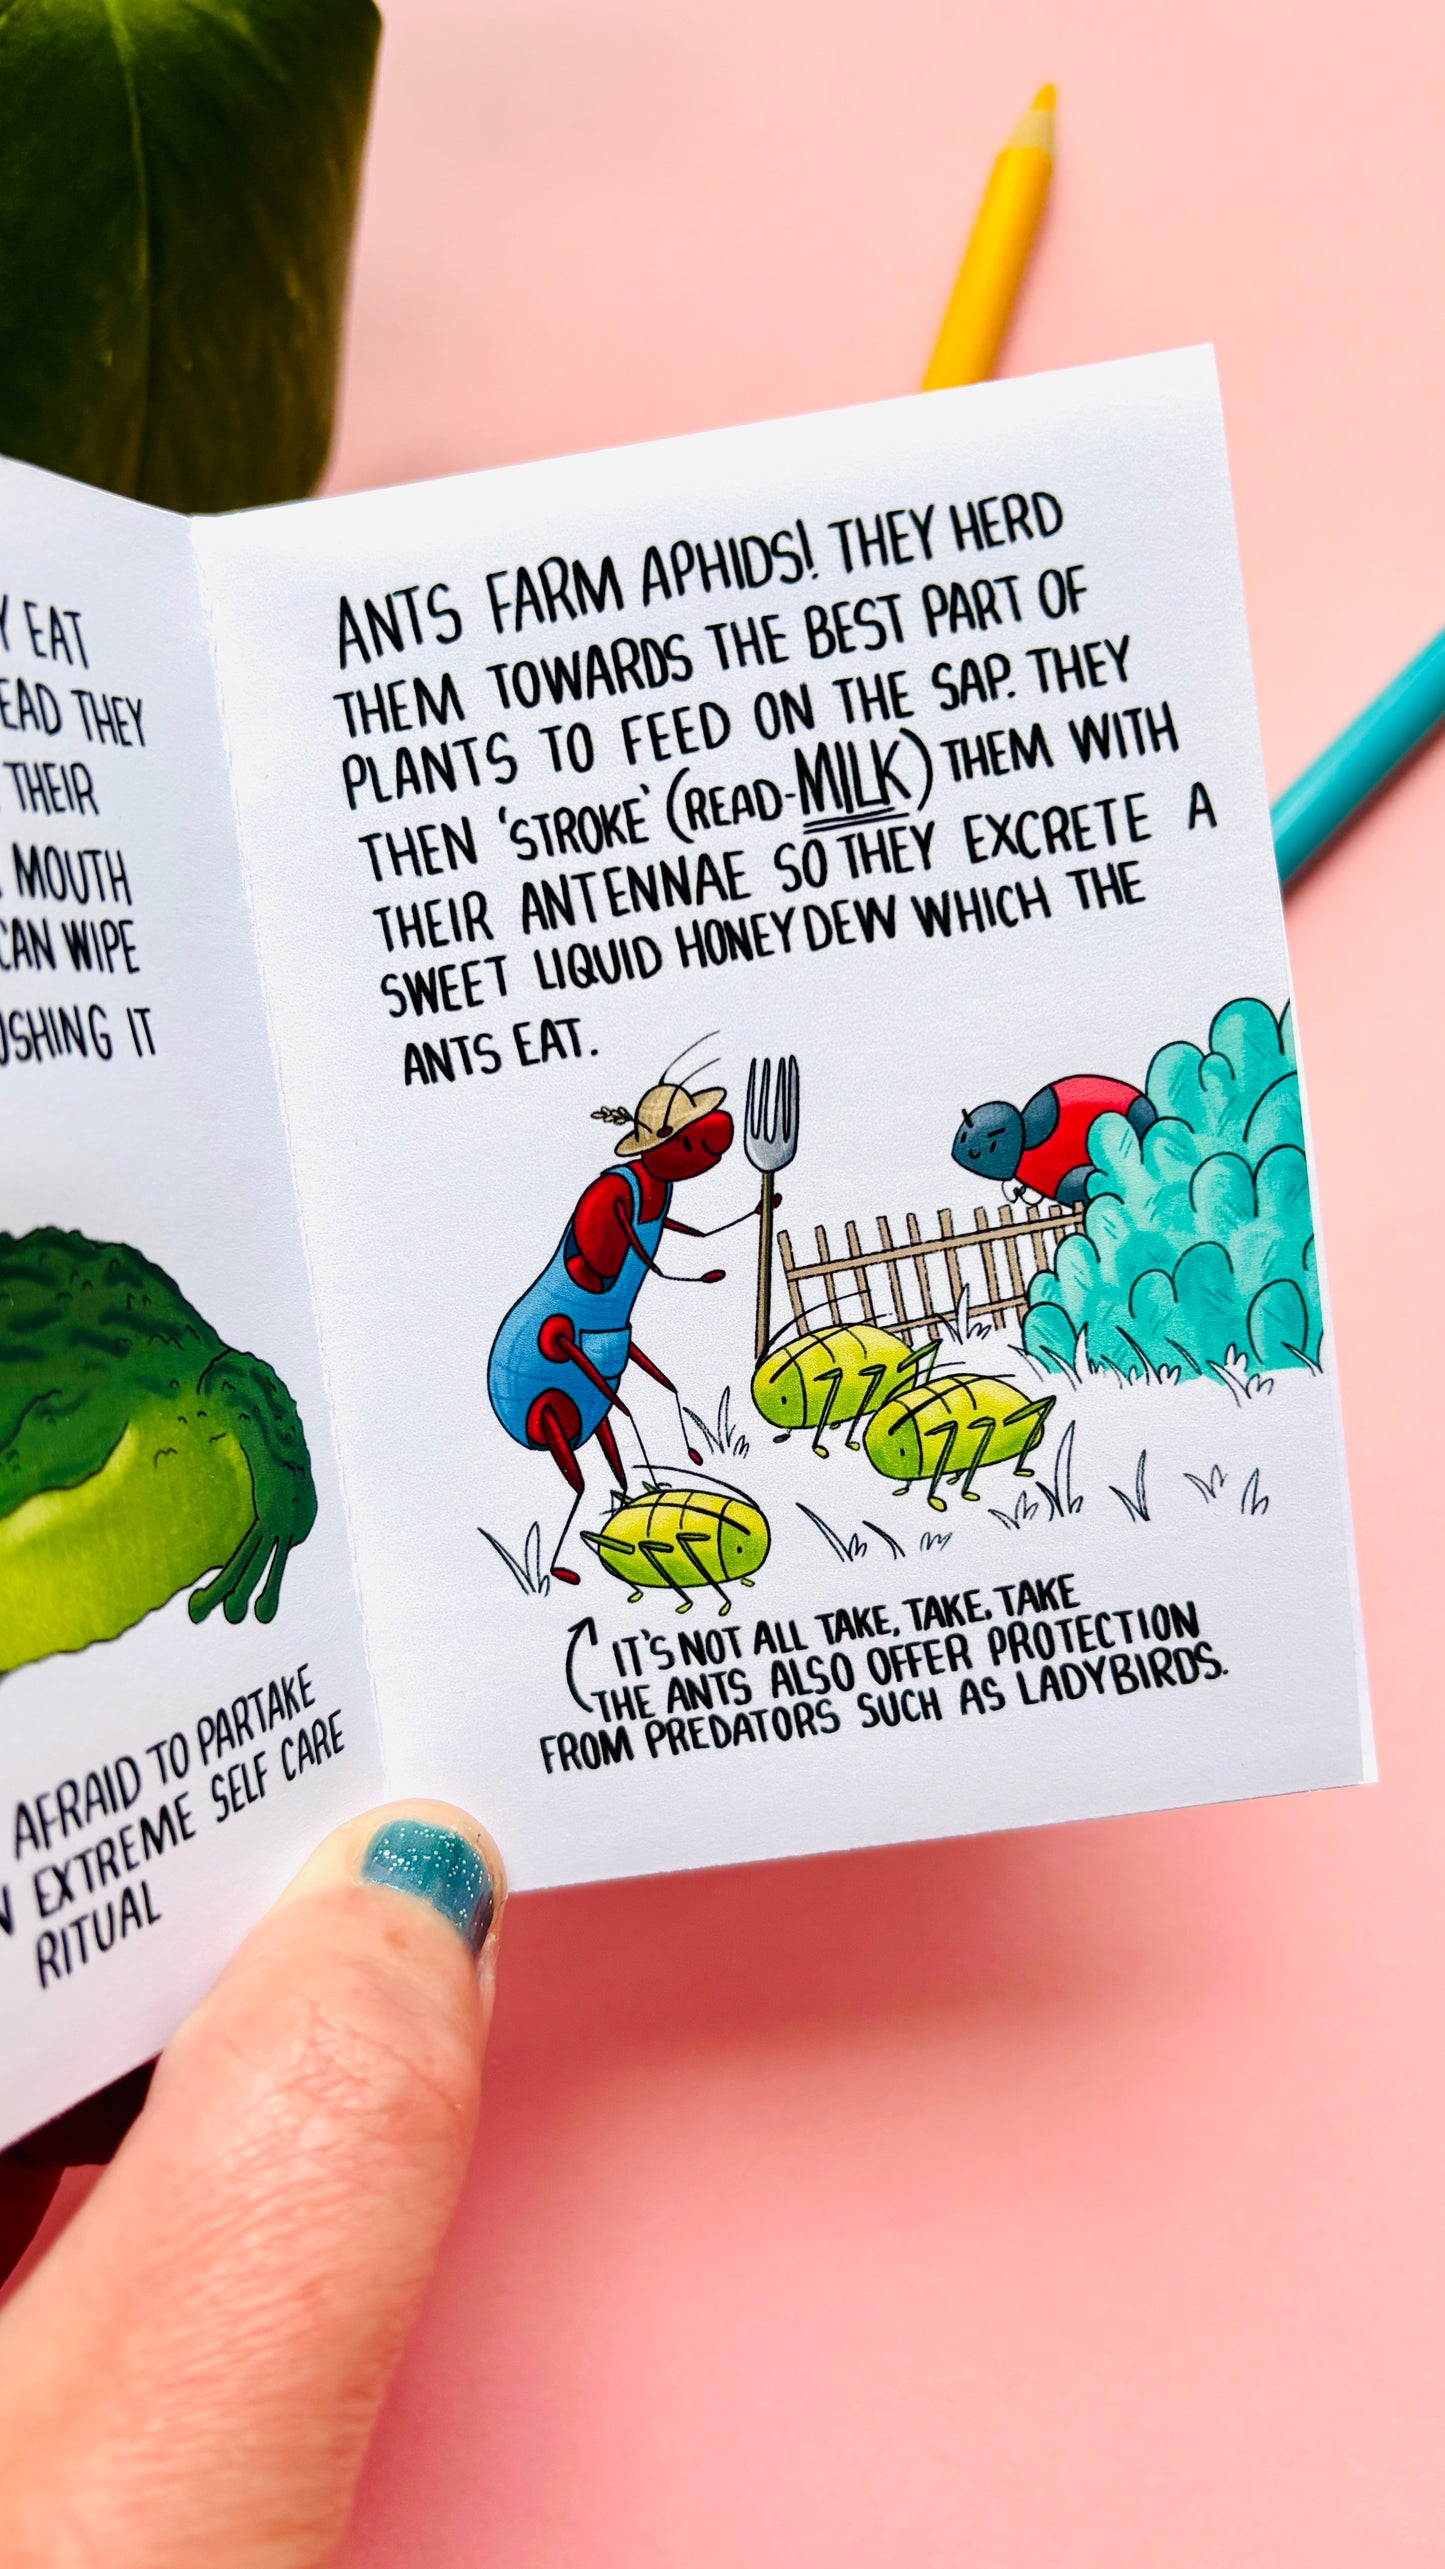 Y EAT
EAD THEY
THEIR
MOUTH
CAN WIPE
USHING IT
AFRAID TO PARTAKE
N EXTREME SELF CARE
RITUAL
ANTS FARM APHIDS! THEY HERD
THEM TOWARDS THE BEST PART OF
PLANTS TO FEED ON THE SAP. THEY
THEN 'STROKE' (READ-MILK) THEM WITH
THEIR ANTENNAE SO THEY EXCRETE A
SWEET LIQUID HONEYDEW WHICH THE
ANTS EAT.
IT'S NOT ALL TAKE, TAKE, TAKE
THE ANTS ALSO OFFER PROTECTION
FROM PREDATORS SUCH AS LADYBIRDS.